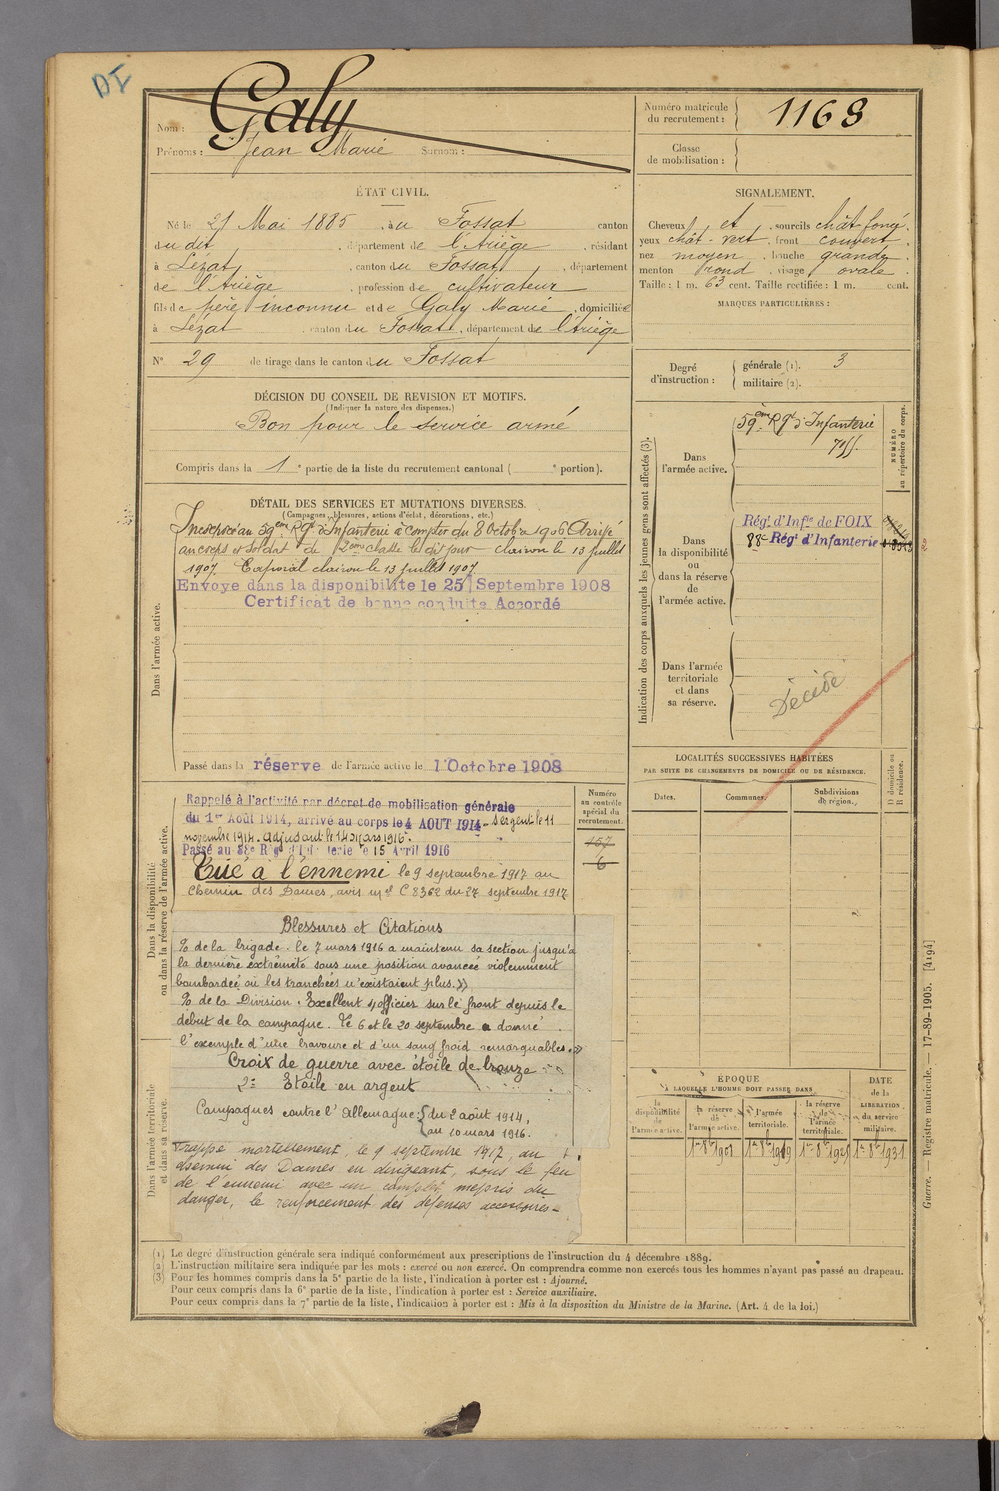 DI
Nom : Galy
Prénoms : Jean Marie Surnom :
Numéro matricule du recrutement : 1168
Classe de mobilisation :
ÉTAT CIVIL.
Né le 21 Mai 1885, à u Fossat canton
du dit, département de l'Ariège, résidant
à Lézat, canton du Fossat, département
de l'Ariège, profession de cultivateur
fils de père inconnu et de Galy Marie, domiciliée
à Lézat, canton du Fossat, département de l'Ariège
N° 29 de tirage dans le canton du Fossat
SIGNALEMENT.
Cheveux et sourcils chât-foncé.
yeux chât-vert front couvert.
nez moyen, bouche grande
menton rond, visage ovale.
Taille : 1 m. 63 cent. Taille rectifiée : 1 m. cent.
MARQUES PARTICULIÈRES :
Degré d'instruction : générale (1). 3
militaire (2).
DÉCISION DU CONSEIL DE REVISION ET MOTIFS.
(Indiquer la nature des dispenses.)
Bon pour le service armé
Compris dans la 1e partie de la liste du recrutement cantonal ( e portion).
DÉTAIL DES SERVICES ET MUTATIONS DIVERSES.
(Campagnes, blessures, actions d'éclat, décorations, etc.)
Dans l'armée active.
Incorporé au 59ème Rgt d'Infanterie à compter du 8 Octobre 1906 Arrivé
au corps et soldat de 2ème classe le dit jour clairon le 13 juillet
1907 Caporal clairon le 13 juillet 1907
Envoyé dans la disponibilité le 25 Septembre 1908
Certificat de bonne conduite Accordé
Passé dans la réserve de l'armée active le 1 Octobre 1908
Indication des corps auxquels les jeunes gens sont affectés (3).
NUMÉRO au répertoire du corps.
Dans l'armée active.
59ème Rgt d'Infanterie
Dans la disponibilité ou dans la réserve de l'armée active.
Régt d'Infie de FOIX
88e Régt d'Infanterie
Dans l'armée territoriale et dans sa réserve.
Décédé
LOCALITÉS SUCCESSIVES HABITÉES
PAR SUITE DE CHANGEMENTS DE DOMICILE OU DE RÉSIDENCE.
Dates. Communes. Subdivisions de région. D domicile ou R résidence.
Dans la disponibilité ou dans la réserve de l'armée active.
Numéro au contrôle spécial du recrutement.
157
6
Rappelé à l'activité par décret de mobilisation générale
du 1er Août 1914, arrivé au corps le 4 AOUT 1914 - Sergent le 11
novembre 1914. adjudant le 14 mars 1916.
Passé au 88e Régt d'Infanterie le 15 Avril 1916
Tué à l'ennemi le 9 septembre 1917 au
Chemin des Dames, avis mel C 8362 du 27 septembre 1917
Blessures et Citations
% de la brigade. le 7 mars 1916 a maintenu sa section jusqu'à
la dernière extrémité sous une position avancée violemment
bombardée où les tranchées n'existaient plus.»
% de la Division. Excellent s/officier sur le front depuis le
début de la campagne. Le 6 et le 20 septembre a donné
l'exemple d'une bravoure et d'un sang froid remarquables.»
Croix de guerre avec étoile de bronze
2e Etoile en argent
Campagnes contre l'Allemagne : du 2 août 1914,
au 10 mars 1916.
Frappé mortellement, le 9 septembre 1917, au
chemin des Dames en dirigeant, sous le feu
de l'ennemi avec un complet mépris du
danger, le renforcement des défenses accessoires-
Dans l'armée territoriale et dans sa réserve.
ÉPOQUE
À LAQUELLE L'HOMME DOIT PASSER DANS
DATE DE LA LIBÉRATION du service militaire.
la disponibilité de l'armée active.
la réserve de l'armée active. 1er 8bre 1908
l'armée territoriale. 1er 8bre 1919
la réserve de l'armée territoriale. 1er 8bre 1925
1er 8bre 1931
(1) Le degré d'instruction générale sera indiqué conformément aux prescriptions de l'instruction du 4 décembre 1889.
(2) L'instruction militaire sera indiquée par les mots : exercé ou non exercé. On comprendra comme non exercés tous les hommes n'ayant pas passé au drapeau.
(3) Pour les hommes compris dans la 5e partie de la liste, l'indication à porter est : Ajourné.
Pour ceux compris dans la 6e partie de la liste, l'indication à porter est : Service auxiliaire.
Pour ceux compris dans la 7e partie de la liste, l'indication à porter est : Mis à la disposition du Ministre de la Marine. (Art. 4 de la loi.)
Guerre. — Registre matricule. — 17-89-1905. [4194]